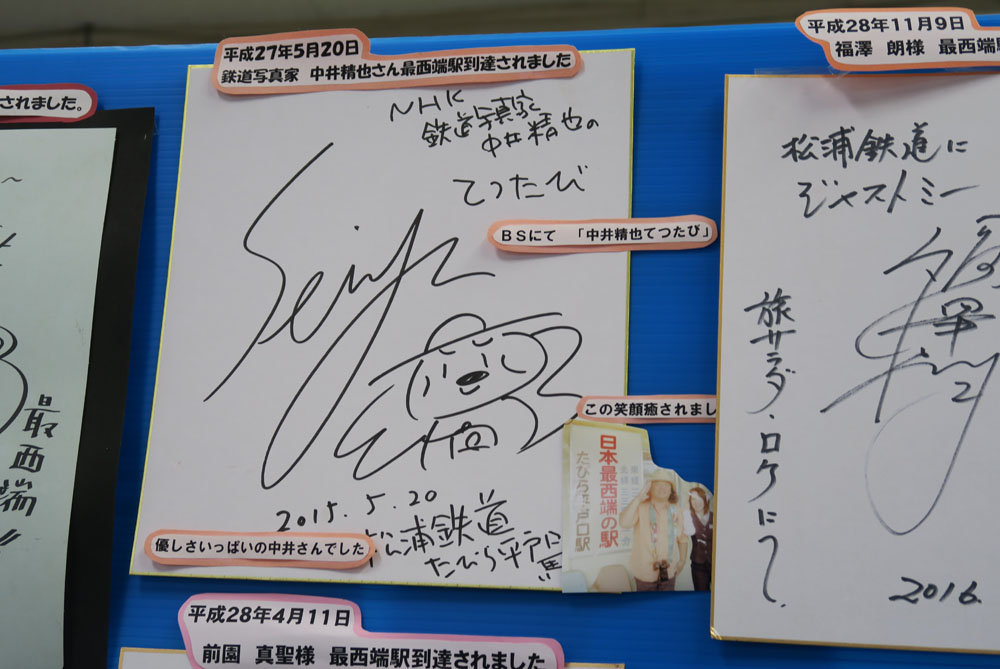 されました。
最
西
端
平成27年5月20日
鉄道写真家 中井精也さん最西端駅到達されました
NHK
鉄道写真家
中井精也の
てつたび
BSにて 「中井精也てつたび」
2015.5.20
松浦鉄道
たびら平戸口
駅
優しさいっぱいの中井さんでした
この笑顔癒されまし
日本最西端の駅
たびら平戸口駅
平成28年11月9日
福澤 朗様 最西端駅
松浦鉄道に
ジャストミー
旅サラダ・ロケにて.
2016.
平成28年4月11日
前園 真聖様 最西端駅到達されました